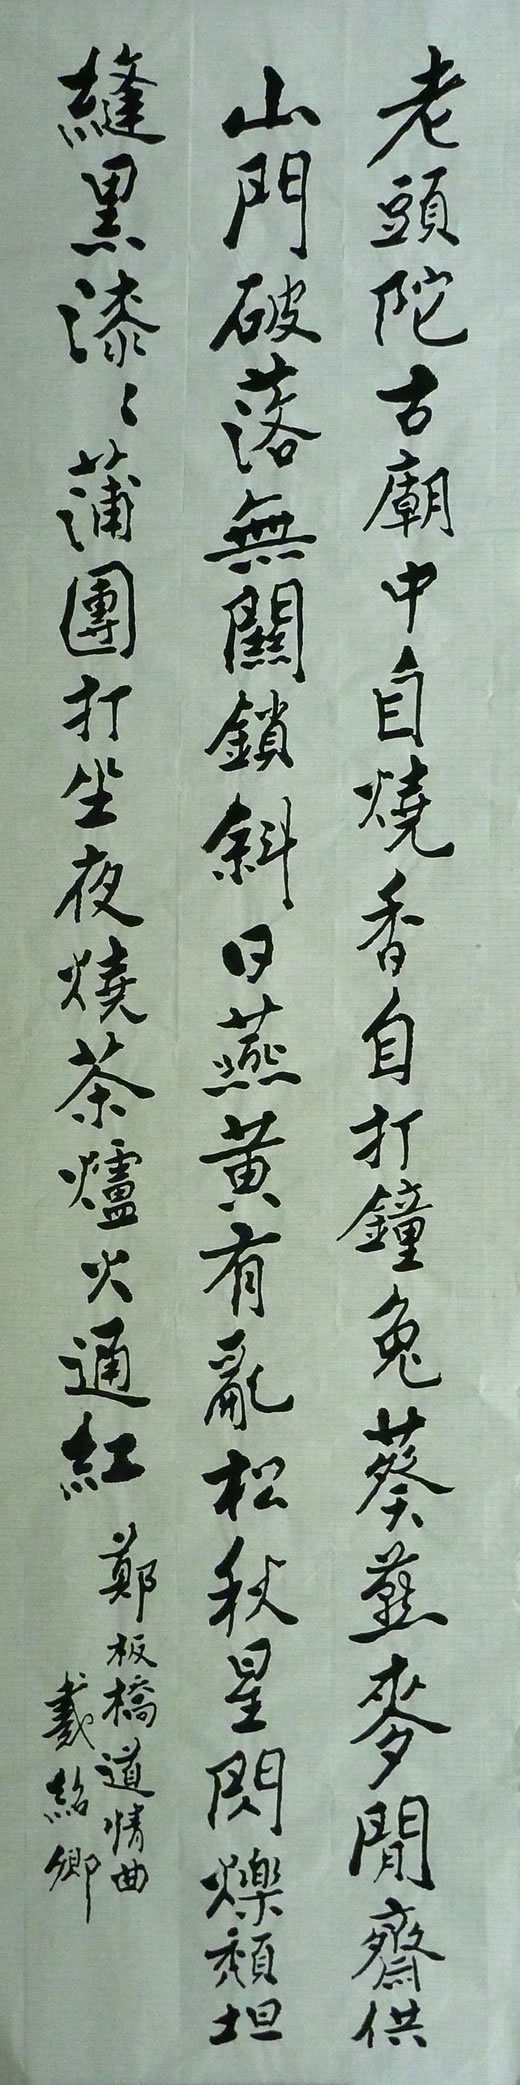 老頭陀古廟中自燒香自打鐘兔葵燕麥閒齋供
山門破落無關鎖斜日燕黄有亂松秋星閃爍頹坦
縫黑漆々蒲團打坐夜燒茶爐火通紅
鄭板橋道情曲
戴紹卿